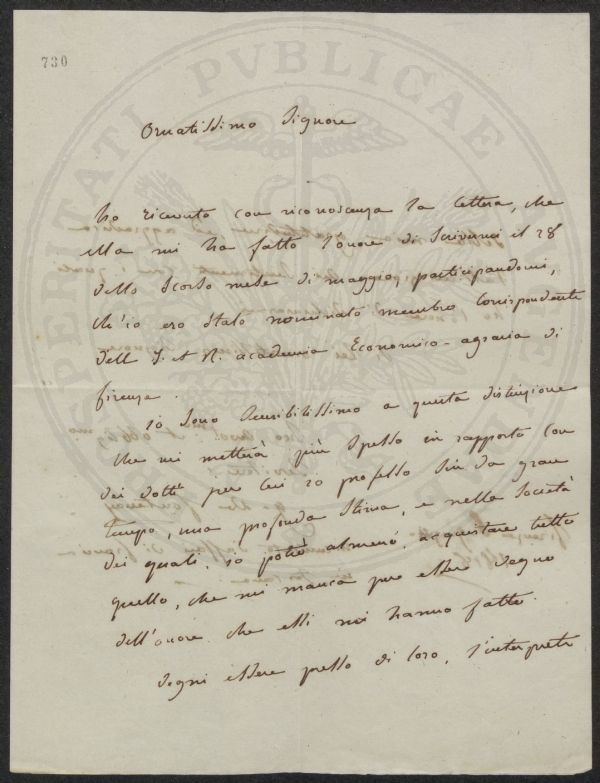 730
PROSPERITATI PVBLICAE
Ornatissimo Signore
ho ricevuto con riconoscenza la lettera, che
ella mi ha fatto l'onore di Scrivermi il 28
dello Scorso mese di maggio, participandomi,
ch'io ero Stato nominato membro Corrispondente
dell' I. et R. academia Economico-agraria di
firenze.
io Sono Sensibilissimo a questa distinzione
che mi metterà più Spesso in rapporto con
dei dotti per cui io professo Sin da gran
tempo, una profonda Stima, e nella Società
dei quali, io potrò almeno, acquistare tutto
quello, che mi manca per essere degno
dell'onore che essi mi hanno fatto.
degni essere presso di loro, l'interprete